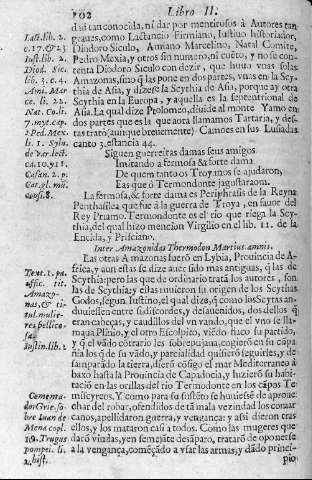 102 Libro II.
did tan conocida, ni dar por mentirosos à Autores tan
graves, como Lactancio Firmiano, Iustino historiador,
Diodoro Siculo, Amiano Marcelino, Natal Comite,
Pedro Mexia, y otros sin numero, ni cuēto, y no se con-
tenta Diodoro Siculo con dezir, que huuo vnas solas
Amazonas, sino q̃ las pone en dos partes, vnas en la Scy-
thia de Asia, y dizese la Scythia de Asia, porque ay otra
Scythia en la Europa, y aquella es la septentrional de
Asia. La qual dize Ptolomeo, diuide al monte Ymao en
dos partes que es la que aora llamamos Tartaria, y des-
tas tratò (aunque breuemente) Camoes en sus Lusiadas
canto 3. estancia 44.
Siguen guerreiras damas seus amigos
Imitando a fermosa & forte dama
De quem tanto os Troyanos se ajudaron,
E as que o Termondonte ja gustaraom.
La fermosa, & forte dama es Periphrasis de la Reyna
Penthasilea que fue à la guerra de Troya, en fauor del
Rey Priamo. Termondonte es el rio que riega la Scy-
thia, del qual hizo mencion Virgilio en el lib. 11. de la
Eneida, y Prisciano.
Inter Amazonidas Thermodon Martius amnis.
Las otras Amazonas fuerõ en Lybia, Prouincia de A-
frica, y aun estas se dize auer sido mas antiguas, q̃ las de
Scythia: pero las que de ordinario tratã los autores, son
las de Scythia: y ellas tuuieron su origen de los Scythas
Godos, segun Iustino, el qual dize, q̃ como los Scytas an-
duuiessen entre si discordes, y desauenidos, dos dellos q̃
eran cabeças, y caudillos del vn vando, que el vno se lla-
maua Plinio, y el otro Escolpito, viēdo flaco su partido,
y q̃ el vãdo cõtrario les sobrepujaua, cogierõ en su cõpa
ñia los q̃ de su vãdo, y parcialidad quisierõ seguirles, y de
sampararõ la tierra, dierõ cõsigo el mar Mediterraneo à
baxo hasta la Prouincia de Capadocia, y hizierõ su habi-
taciõ en las orillas del rio Termodonte en los cãpos Te
miscyreos. Y como para su sustēto se huuiesse de aproue-
char del robar, ofendidos de tã mala vezindad los comar
canos, apellidaron guerra, y vengança: y assi dieron tras
ellos, y los mataron casi a todos. Como las mugeres que
darõ viudas, y en semejãte desãparo, trataron de oponerse
a la vengança, començãdo a vsar las armas, y dãdo princi-
pio
Lact. lib. 2.
c. 17. & 23
Iust. lib. 2.
Diod. Sic.
lib. 3. c. 4.
Ami. Mar
ce. li. 22.
Nat. Co. li.
7. myt. c. 9.
2 Ped. Mex.
li. 1. Sylu.
de var. lect.
ca. 10. y 11.
Casan. 2. p.
Cat. gl. mũ.
cons. 8.
Text. 1. pa.
offic. tit.
Amazo-
nas, & ti-
tul. mulie-
res bellico-
sæ.
Iustin. lib. 2
Comenta-
dor Grie. so-
bre Iuan de
Mena copl.
19. Trogus
pompei. li.
2. hist.